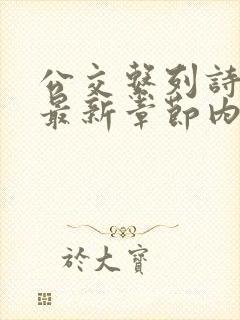 公交系列詩
最新章節內
於大寶